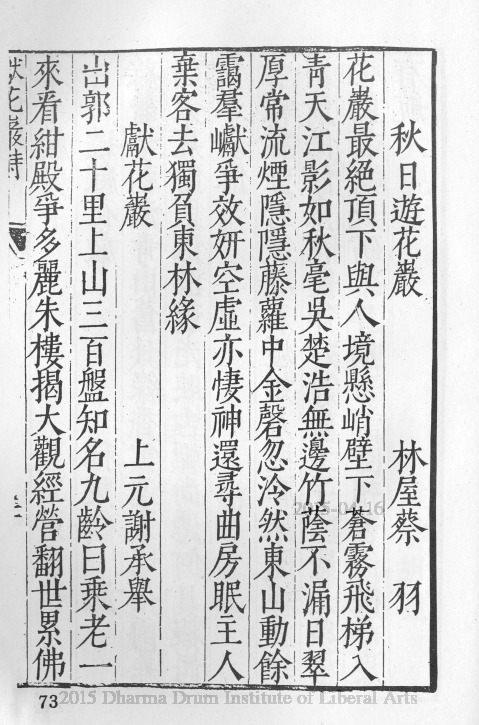 秋日遊花巖 林屋蔡 羽
花巖最絕頂下與人境懸峭壁下蒼霧飛梯入
青天江影如秋毫吳楚浩無邊竹蔭不漏日翠
厚常流煙隱隱藤蘿中金磬忽泠然東山動餘
靄羣巘爭效妍空虛亦悽神還尋曲房眠主人
棄客去獨負東林緣
獻花巖 上元謝承舉
出郭二十里上山三百盤知名九齡日乘老一
來看紺殿爭多麗朱樓揭大觀經營翻世累佛
獻花巖詩
73
2015-04-16
2015 Dharma Drum Institute of Liberal Arts